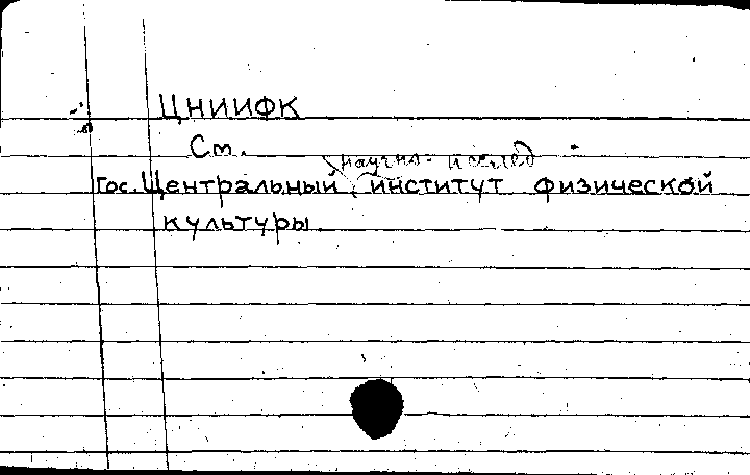 ЦНИИФК
См.
научно-исслед
Гос. Центральный институт физической
культуры